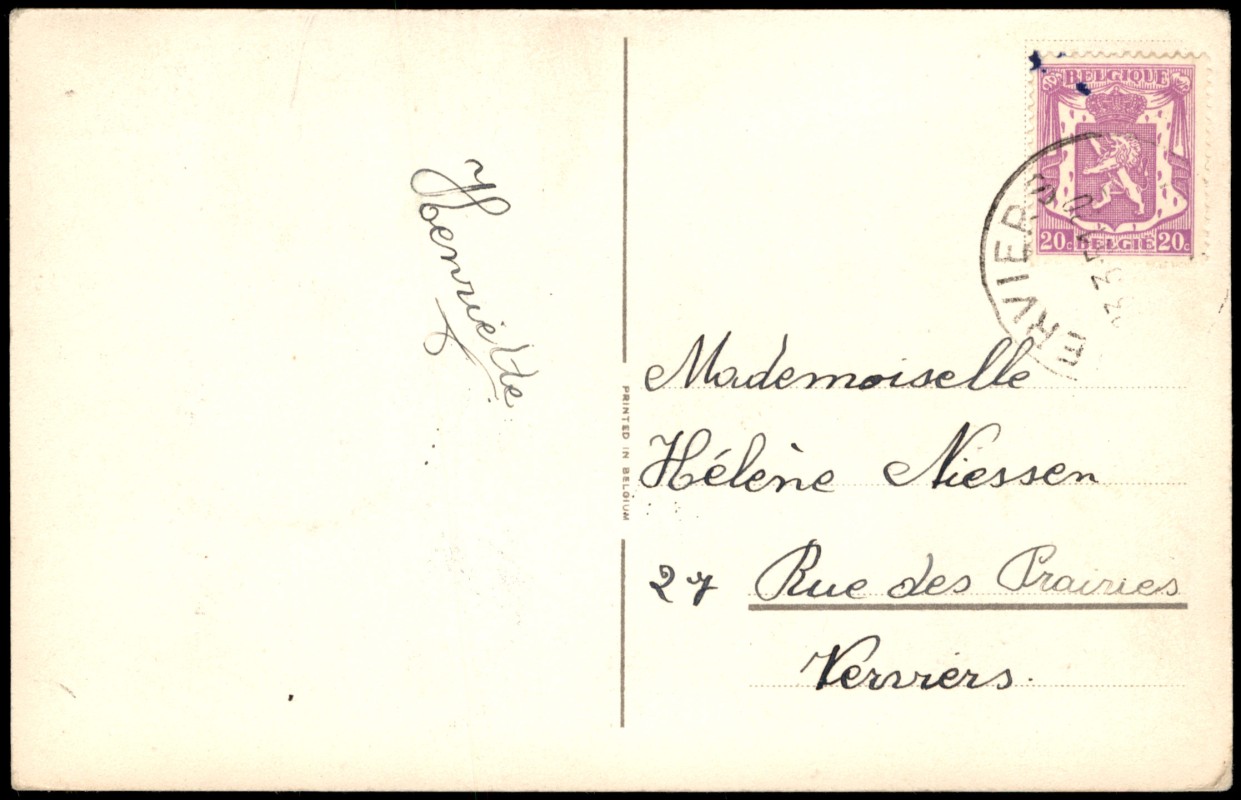 Henriette
PRINTED IN BELGIUM
BELGIQUE
20c BELGIË 20c
VERVIERS
Mademoiselle
Hélène Niessen
27 Rue des Prairies
Verviers.